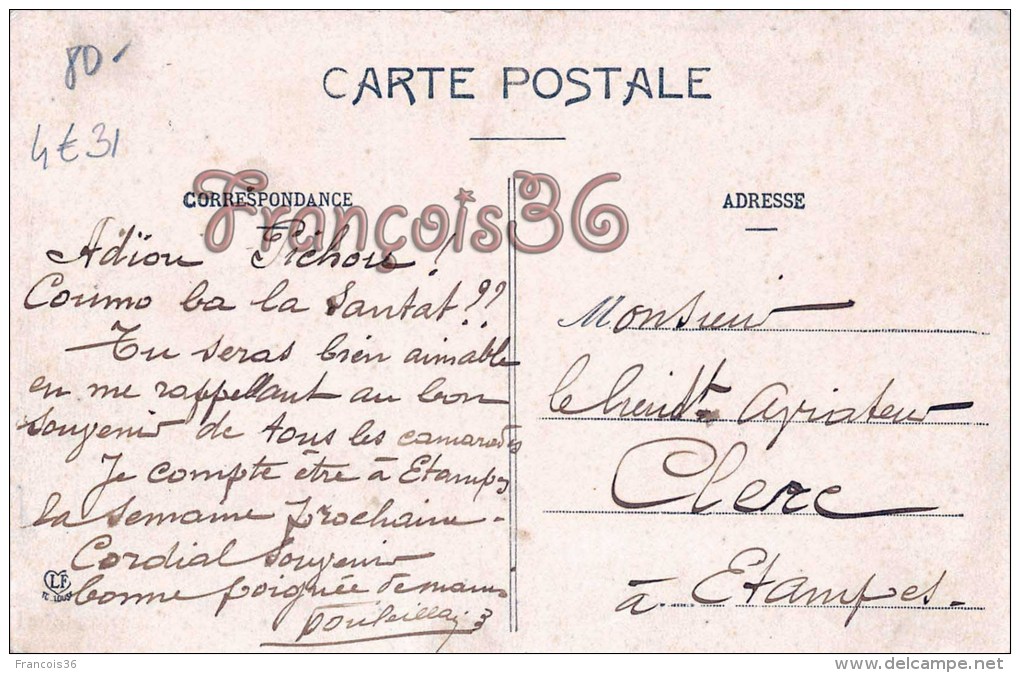 80-
4€31
CARTE POSTALE
CORRESPONDANCE
François36
Adïou Pichou !
Coumo ba la santat ??
Tu seras bien aimable
en me rappellant au bon
souvenir de tous les camarades
Je compte être à Etampes
la semaine prochaine -
Cordial souvenir
bonne poignée de mains
LF
ADRESSE
Monsieur
le Lieut Aviateur
Clerc
à Etampes -
François36
www.delcampe.net